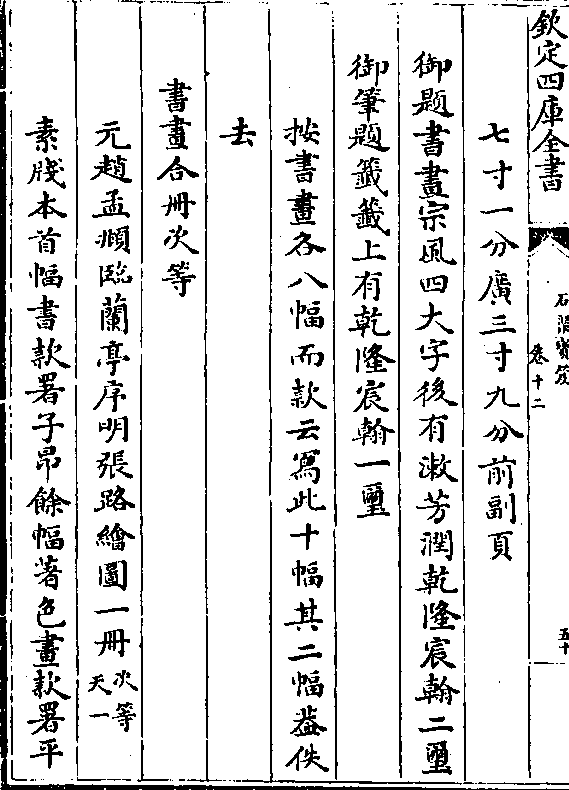 欽定四庫全書
石渠寶笈
卷十二
五十
七寸一分廣三寸九分前副頁
御題書畫宗風四大字後有漱芳潤乾隆宸翰二璽
御筆題籤籤上有乾隆宸翰一璽
按書畫各八幅而款云寫此十幅其二幅葢佚
去
書畫合冊次等
元趙孟頫臨蘭亭序明張路繪圖一冊次等
天一
素牋本首幅書款署子昂餘幅著色畫款署平